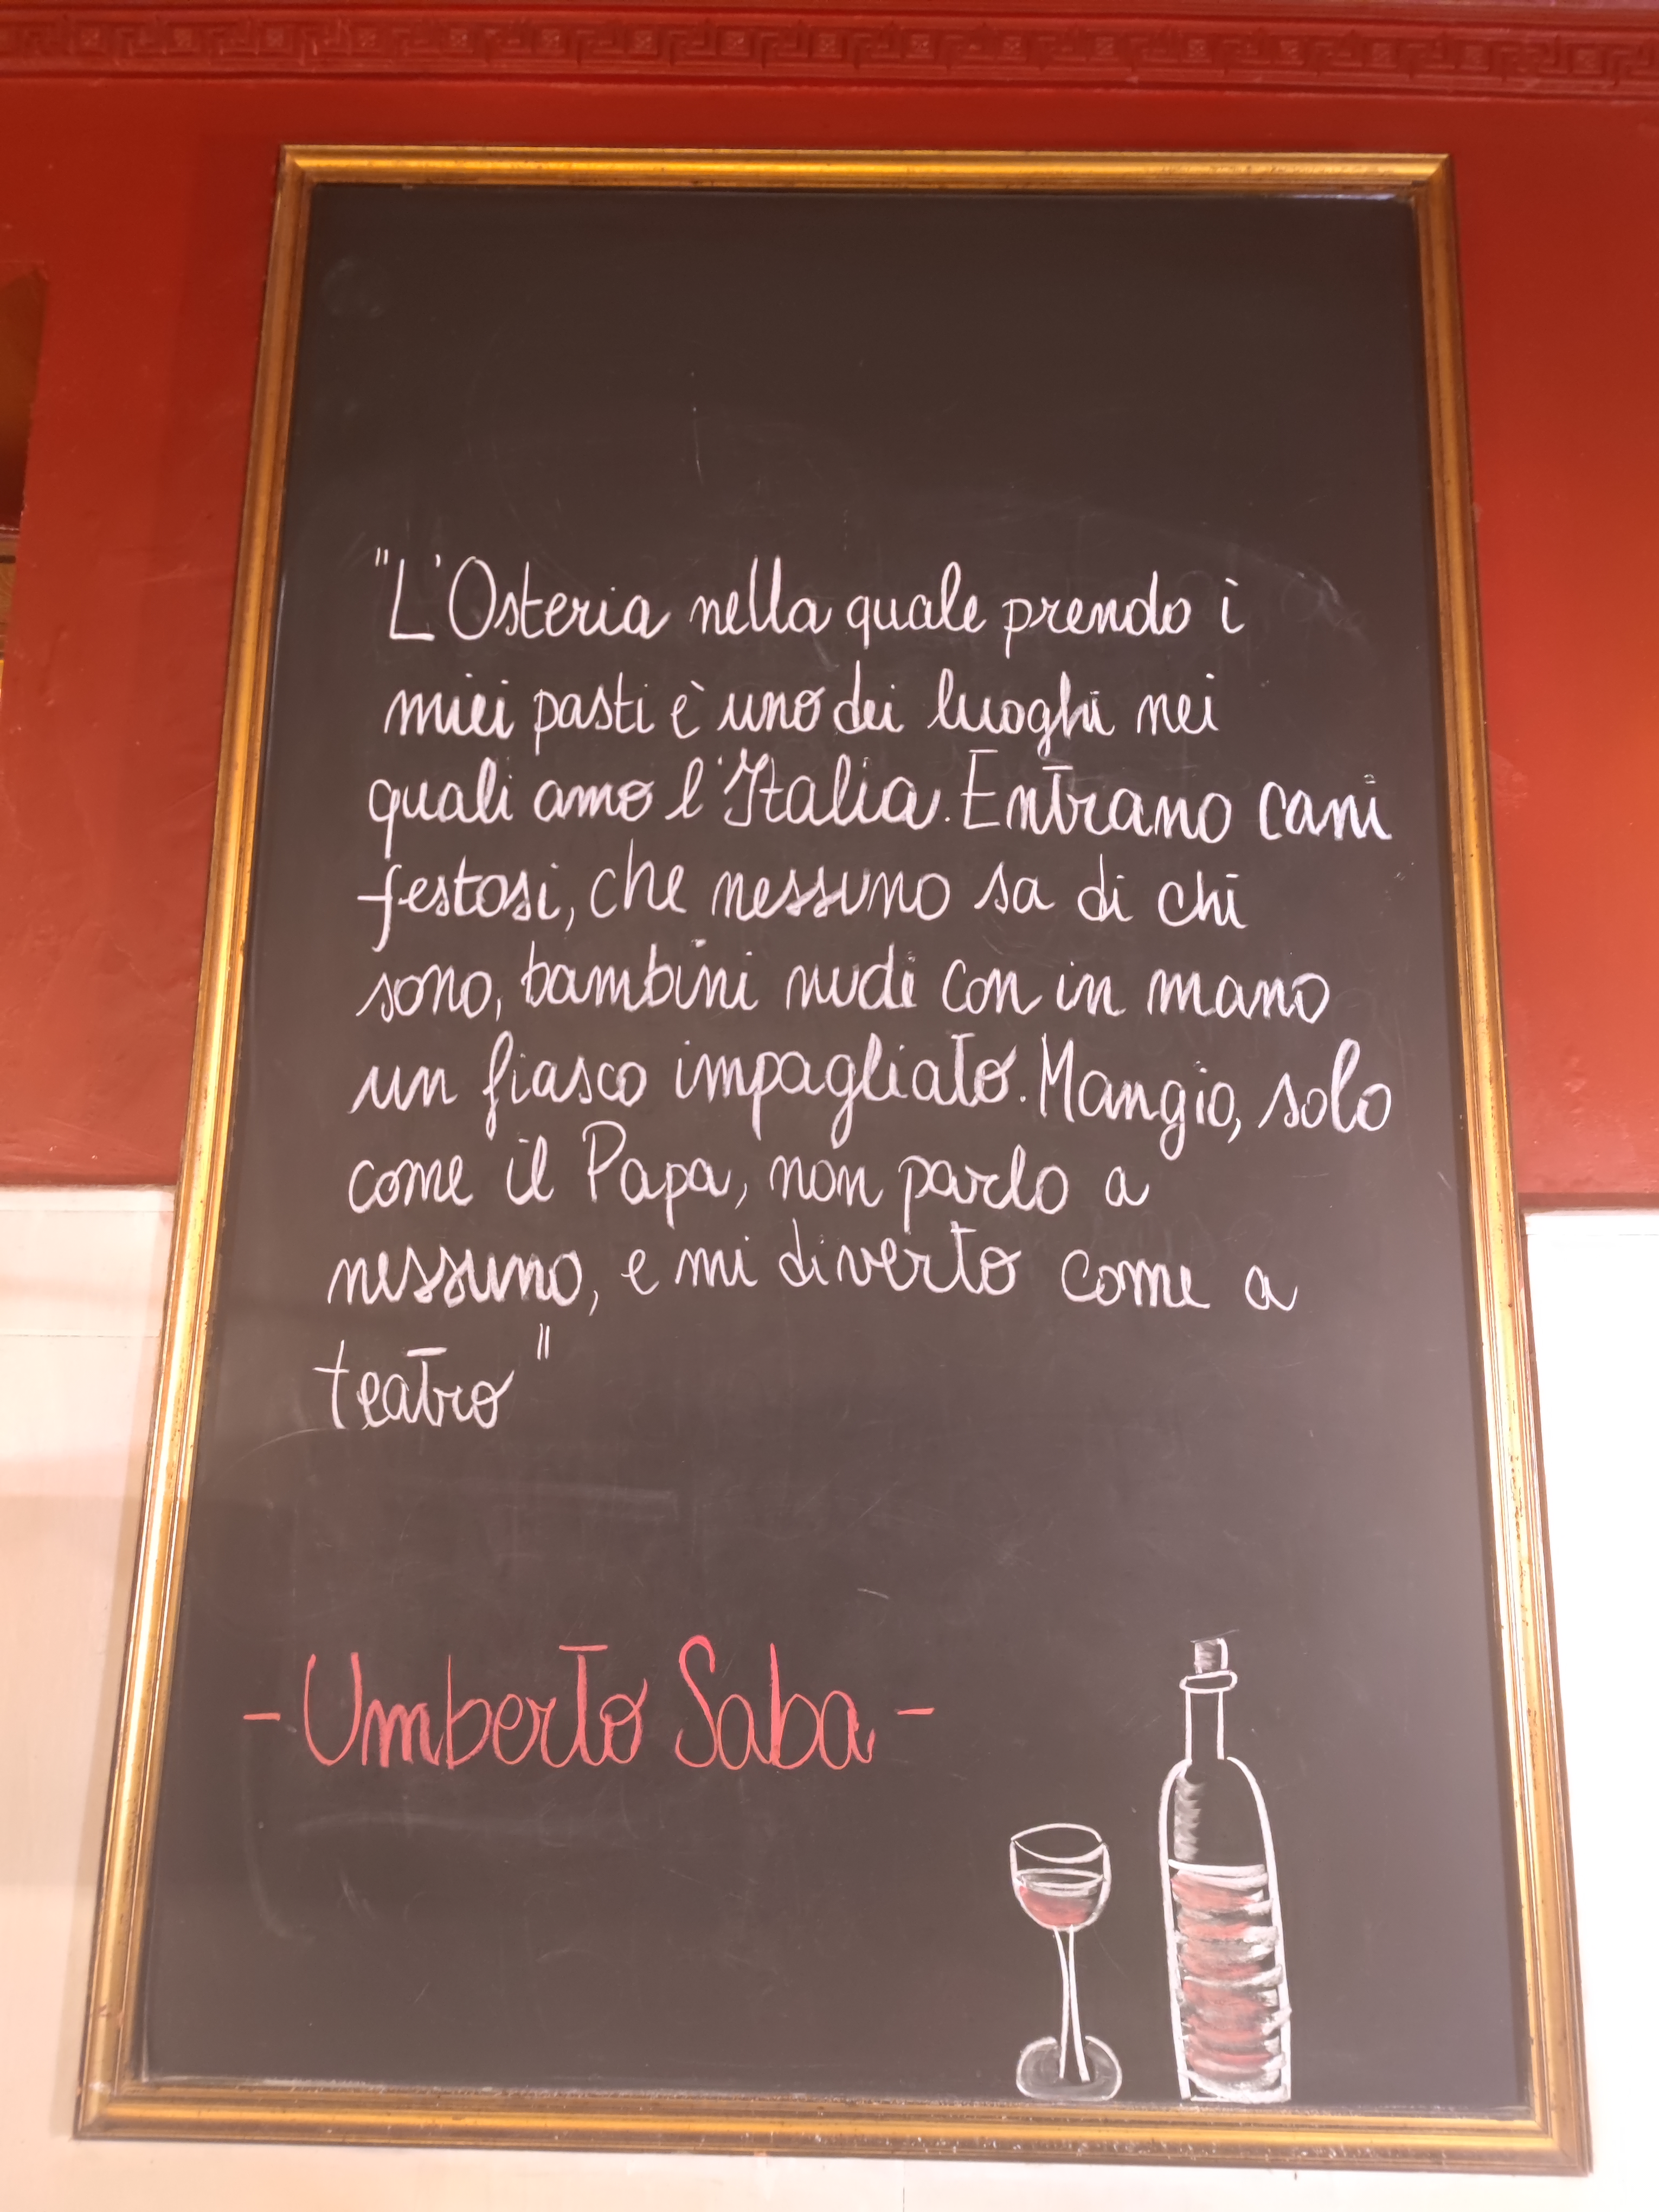 "L'Osteria nella quale prendo i
miei pasti è uno dei luoghi nei
quali amo l'Italia. Entrano cani
festosi, che nessuno sa di chi
sono, bambini nudi con in mano
un fiasco impagliato. Mangio, solo
come il Papa, non parlo a
nessuno, e mi diverto come a
teatro"
- Umberto Saba -